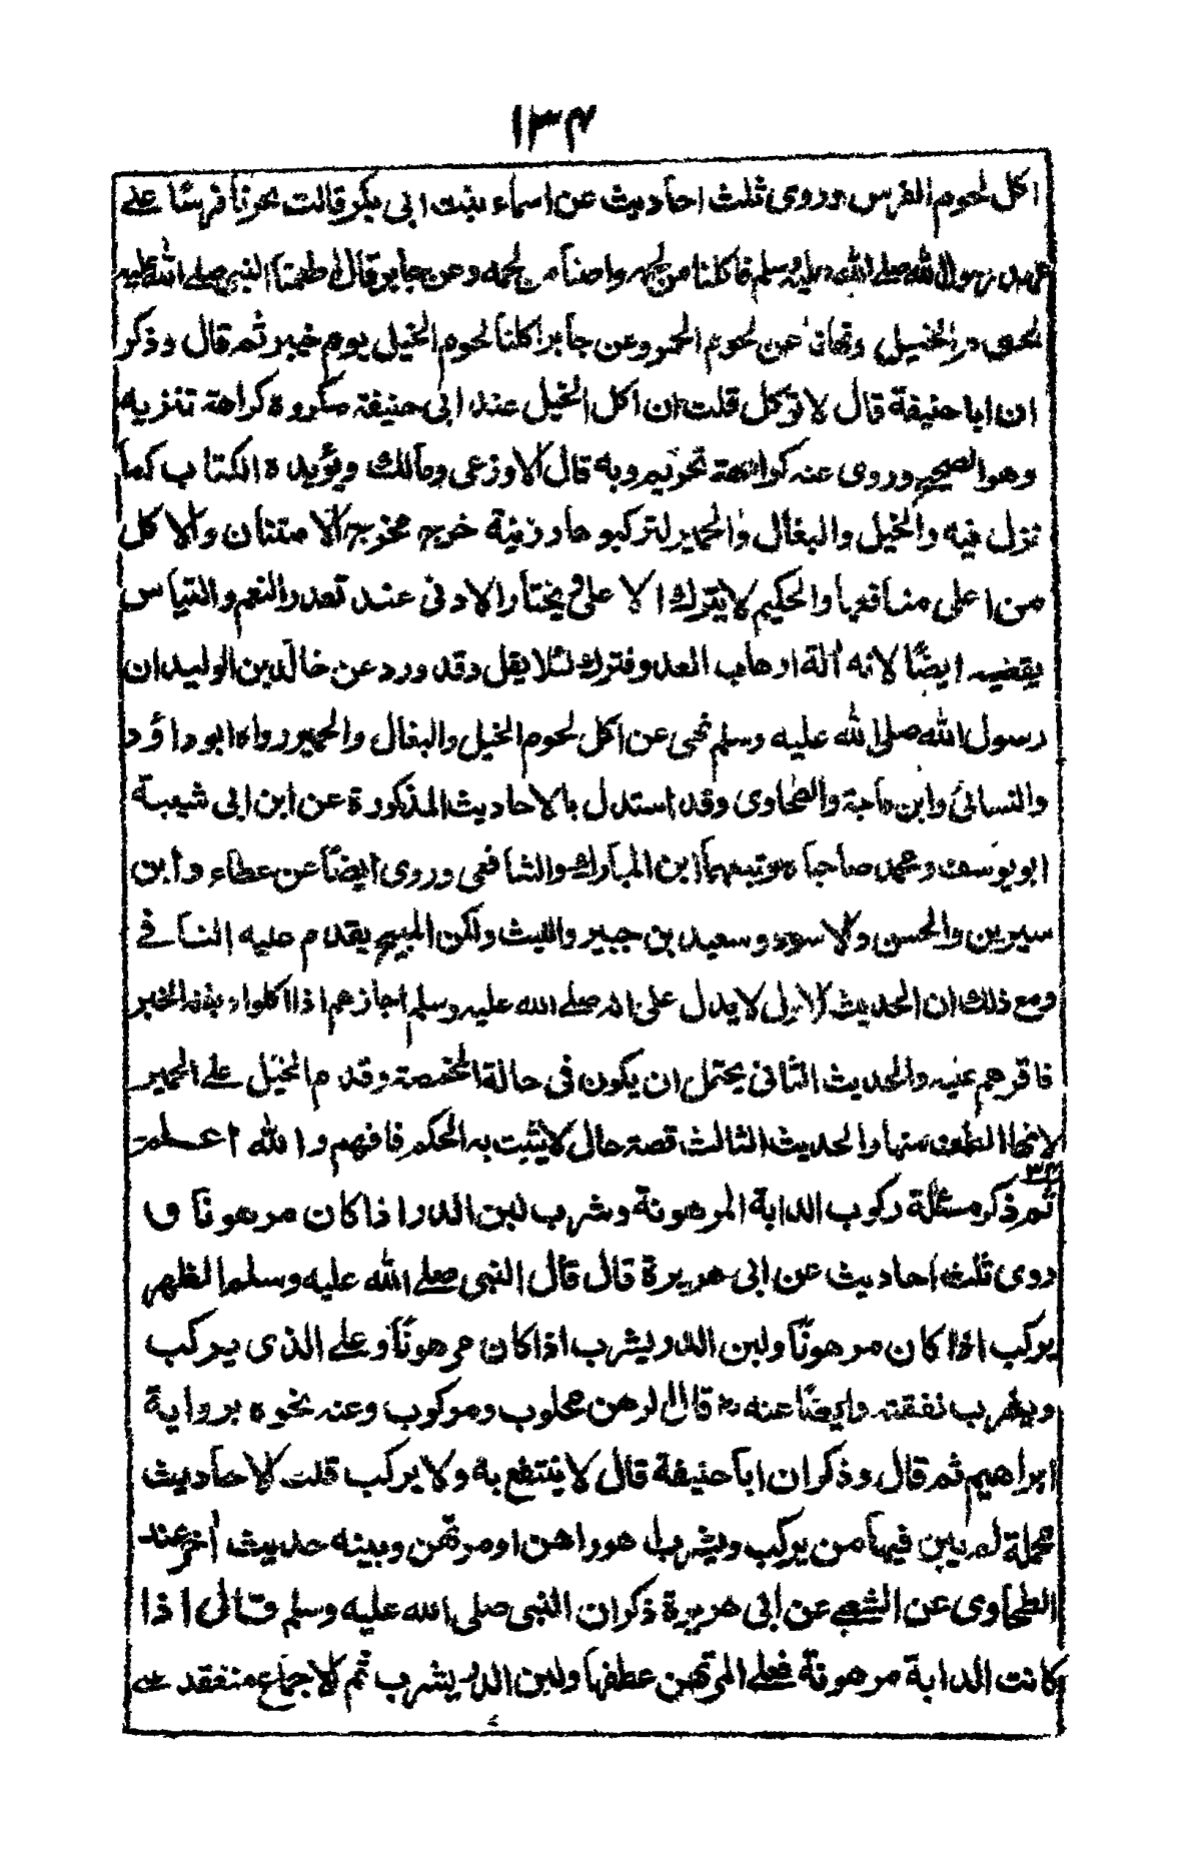 ١٣٤
اكل لحوم الفرس وروى ثلث احاديث عن اسماء بنت ابى بكر قالت نحرنا فرسًا على
عهد رسول الله صلے الله عليه وسلم فاكلنا من لحمه واصبنا من لحمه وعن جابر قال اطعمنا النبى صلے الله عليه
لحوم الخيل ونهانا عن لحوم الحمر وعن جابر اكلنا لحوم الخيل يوم خيبر ثم قال وذكر
ان ابا حنيفة قال لا تؤكل قلت ان اكل الخيل عند ابى حنيفة مكروه كراهة تنزيه
وهو الصحيح وروى عنه كراهة تحريم وبه قال الاوزعى ومالك ويؤيده الكتاب كما
نزل فيه والخيل والبغال والحمير لتركبوها وزينة خرج مخرج الامتنان والاكل
من اعلى منافعها والحكيم لا يترك الاعلى ويختار الادنى عند تعدد النعم والقياس
يقضيه ايضًا لانه الة ارهاب العدو فترك لئلا يقل وقد ورد عن خالد بن الوليد ان
رسول الله صلى الله عليه وسلم نهى عن اكل لحوم الخيل والبغال والحمير رواه ابو داؤد
والنسائى وابن ماجة والطحاوى وقد استدل بالاحاديث المذكورة عن ابن ابى شيبة
ابو يوسف ومحمد صاحباه وتبعهما ابن المبارك والشافعى وروى ايضًا عن عطاء وابن
سيرين والحسن والاسود وسعيد بن جبير والليث ولكن المبيح يقدم عليه النافے
ومع ذلك ان الحديث الاول لا يدل على انه صلے الله عليه وسلم اجازهم اذا اكلوا الخبر
فاقرهم عليه والحديث الثانى يحتمل ان يكون فى حالة المخمصة وقدم الخيل علے الحمير
لانها الطف منها والحديث الثالث قصة حال لا يثبت به الحكم فافهم والله اعلم
٣٤
ثم ذكر مسئلة ركوب الدابة المرهونة وشرب لبن الدر اذا كان مرهونا و
روى ثلث احاديث عن ابى هريرة قال قال النبى صلے الله عليه وسلم الظهر
يركب اذا كان مرهونًا ولبن الدر يشرب اذا كان مرهونًا وعلے الذى يركب
ويشرب نفقته وايضًا عنه قال الرهن محلوب ومركوب وعنه نحوه برواية
ابراهيم ثم قال وذكر ان ابا حنيفة قال لا ينتفع به ولا يركب قلت الاحاديث
مجملة لم يبين فيها من يركب ويشرب هو راهن او مرتهن وبينه حديث اخر عند
الطحاوى عن الشعبے عن ابى هريرة ذكر ان النبى صلى الله عليه وسلم قال اذا
كانت الدابة مرهونة فعلے المرتهن علفها ولبن الدر يشرب ثم الاجماع منعقد علے